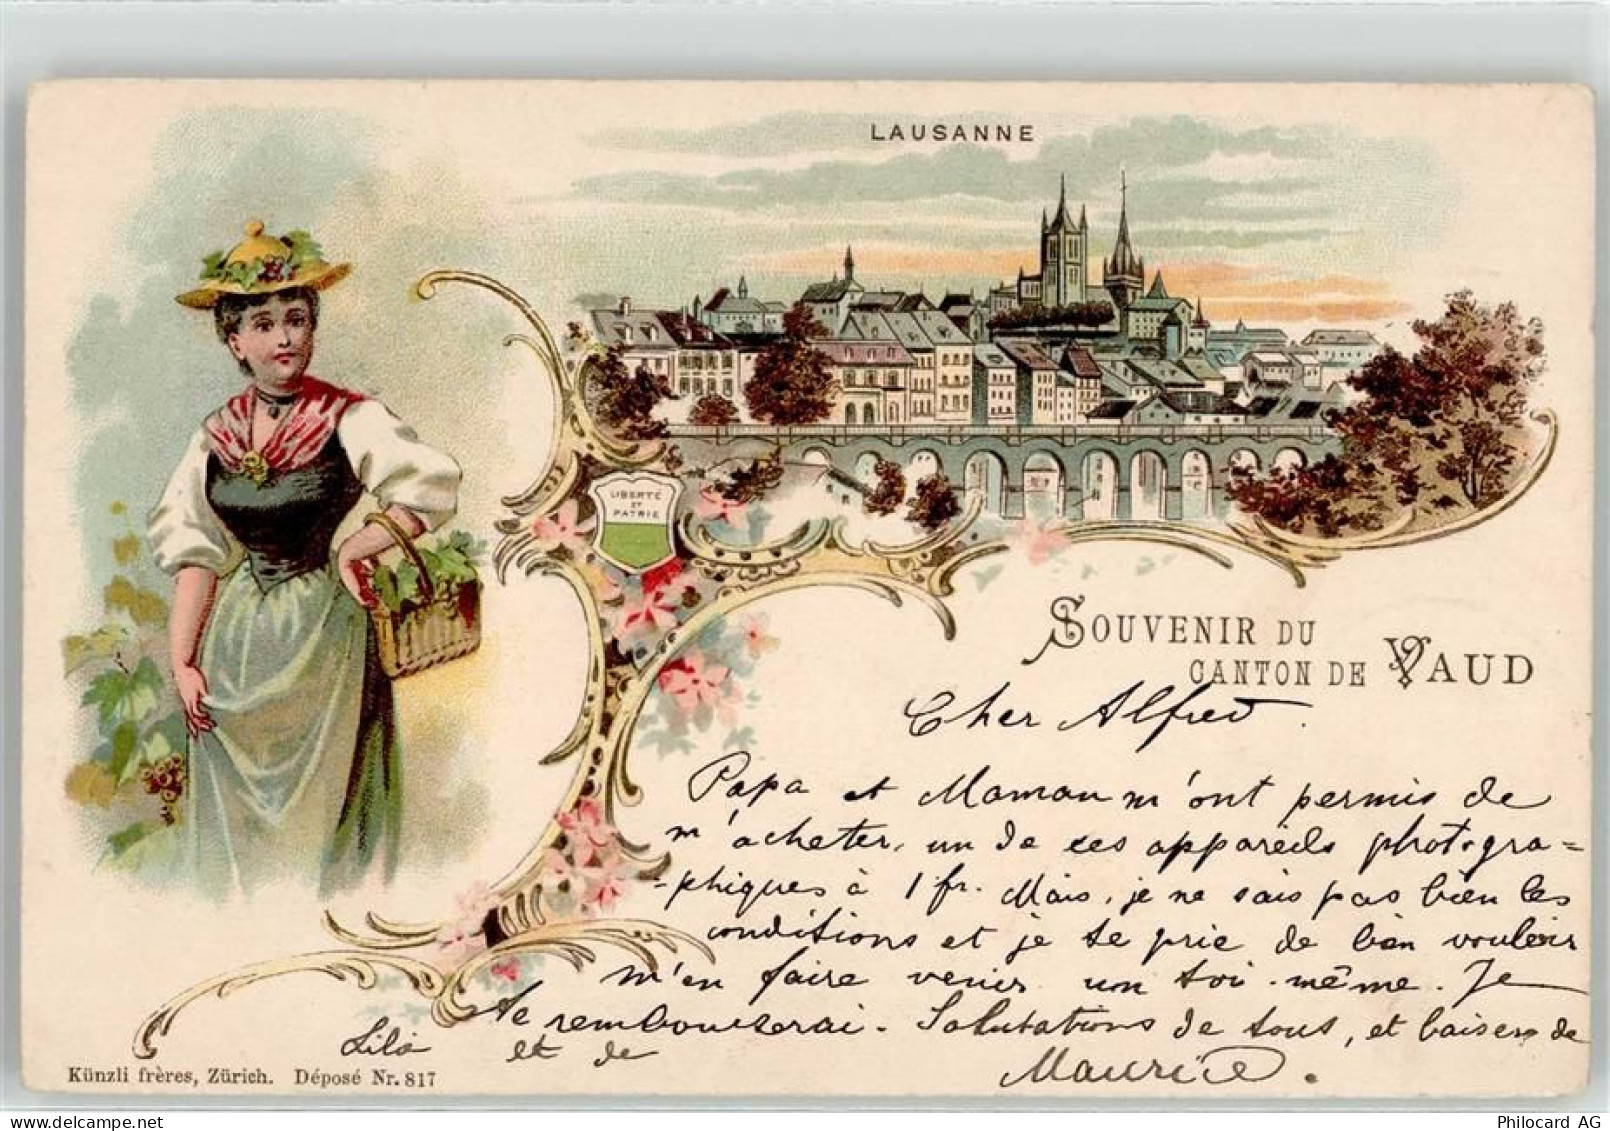 LAUSANNE
LIBERTÉ
ET
PATRIE
SOUVENIR DU
CANTON DE VAUD
Cher Alfred.
Papa et Maman m'ont permis de
m'acheter, un de ces appareils photogra=
-phiques à 1 fr. Mais, je ne sais pas bien les
conditions et je te prie de bien vouloir
m'en faire venir un toi-même. Je
te rembourserai. Salutations de tous, et baisers de
Lila et de Maurice.
Künzli frères, Zürich. Déposé Nr. 817
Philocard AG